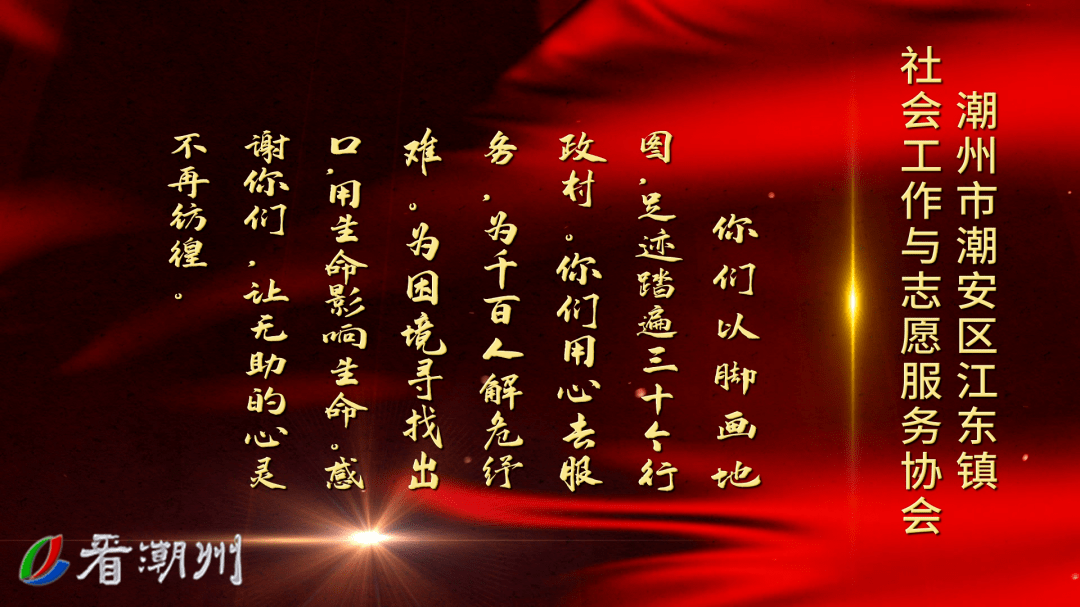 潮州市潮安区江东镇
社会工作与志愿服务协会
你们以脚画地
图，足迹踏遍三十个行
政村。你们用心去服
务，为千百人解危纾
难。为因境寻找出
口，用生命影响生命。感
谢你们，让无助的心灵
不再彷徨。
看潮州